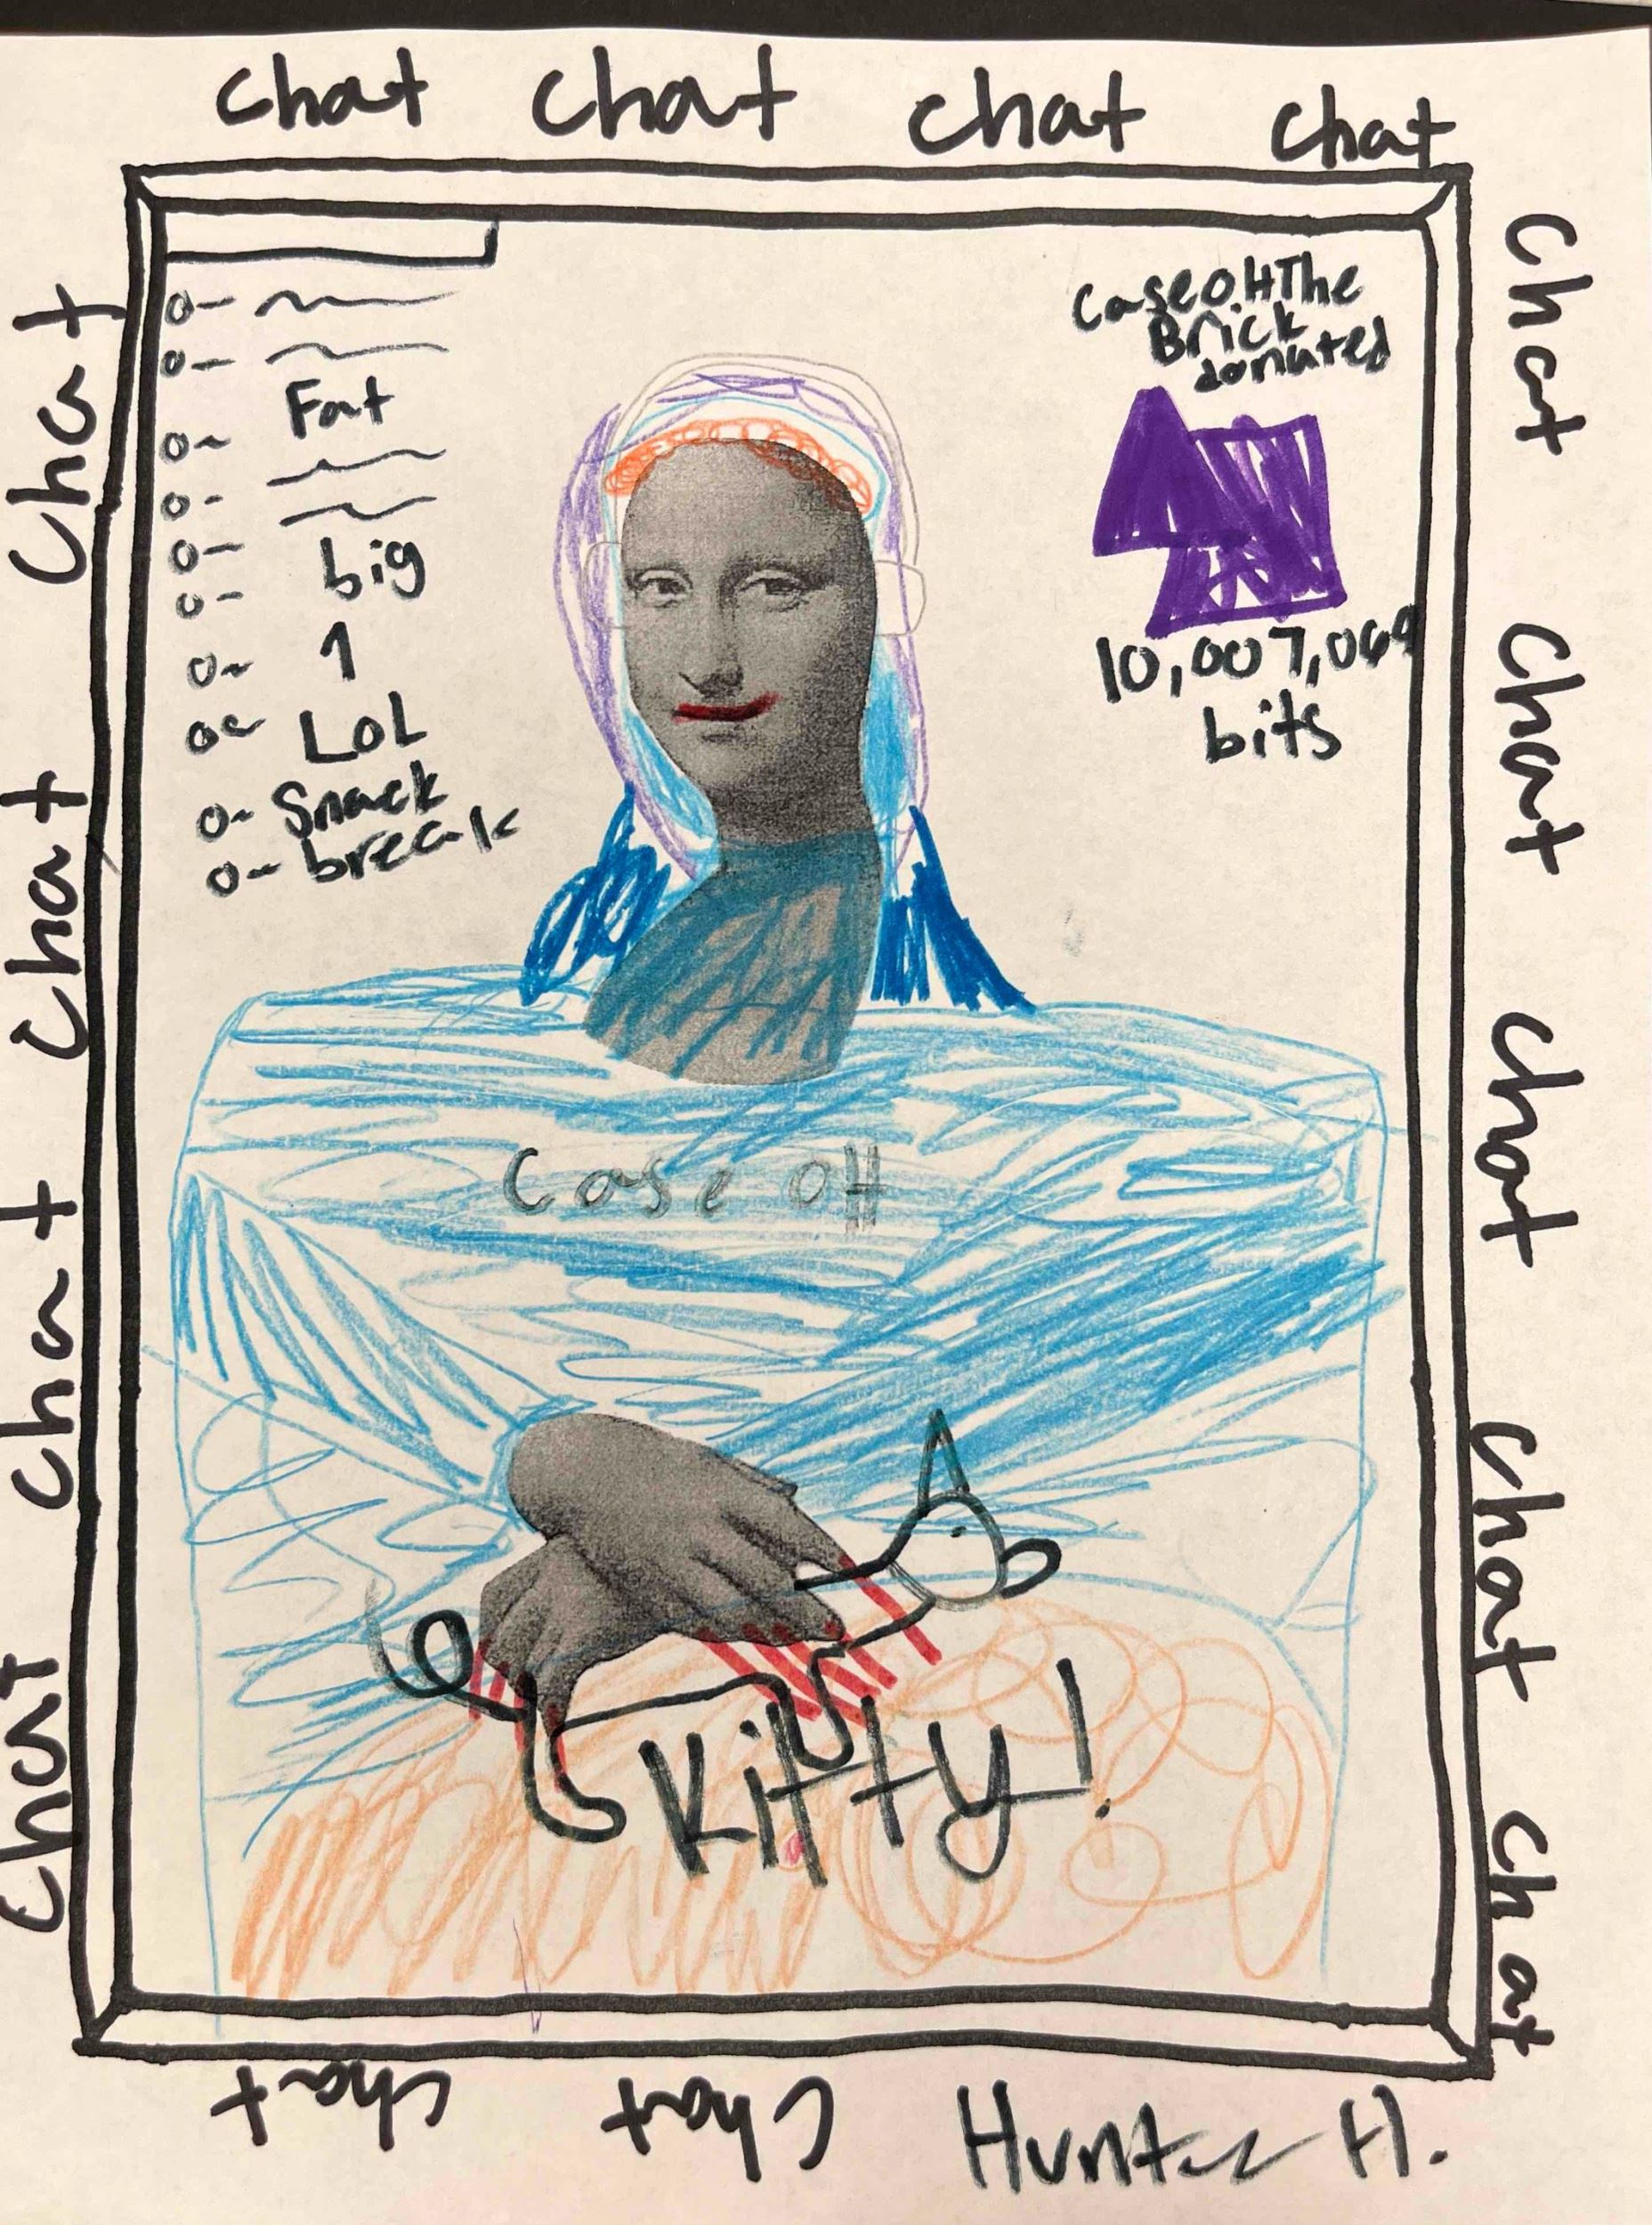 chat chat chat chat
CaseOHThe
Brick
donated
Fat
big
1
LOL
Snack
break
10,007,069
bits
Case OH
Kitty!
chat
chat
chat
chat
chat
chat
chat
chat
chat
chat chat
Hunter H.